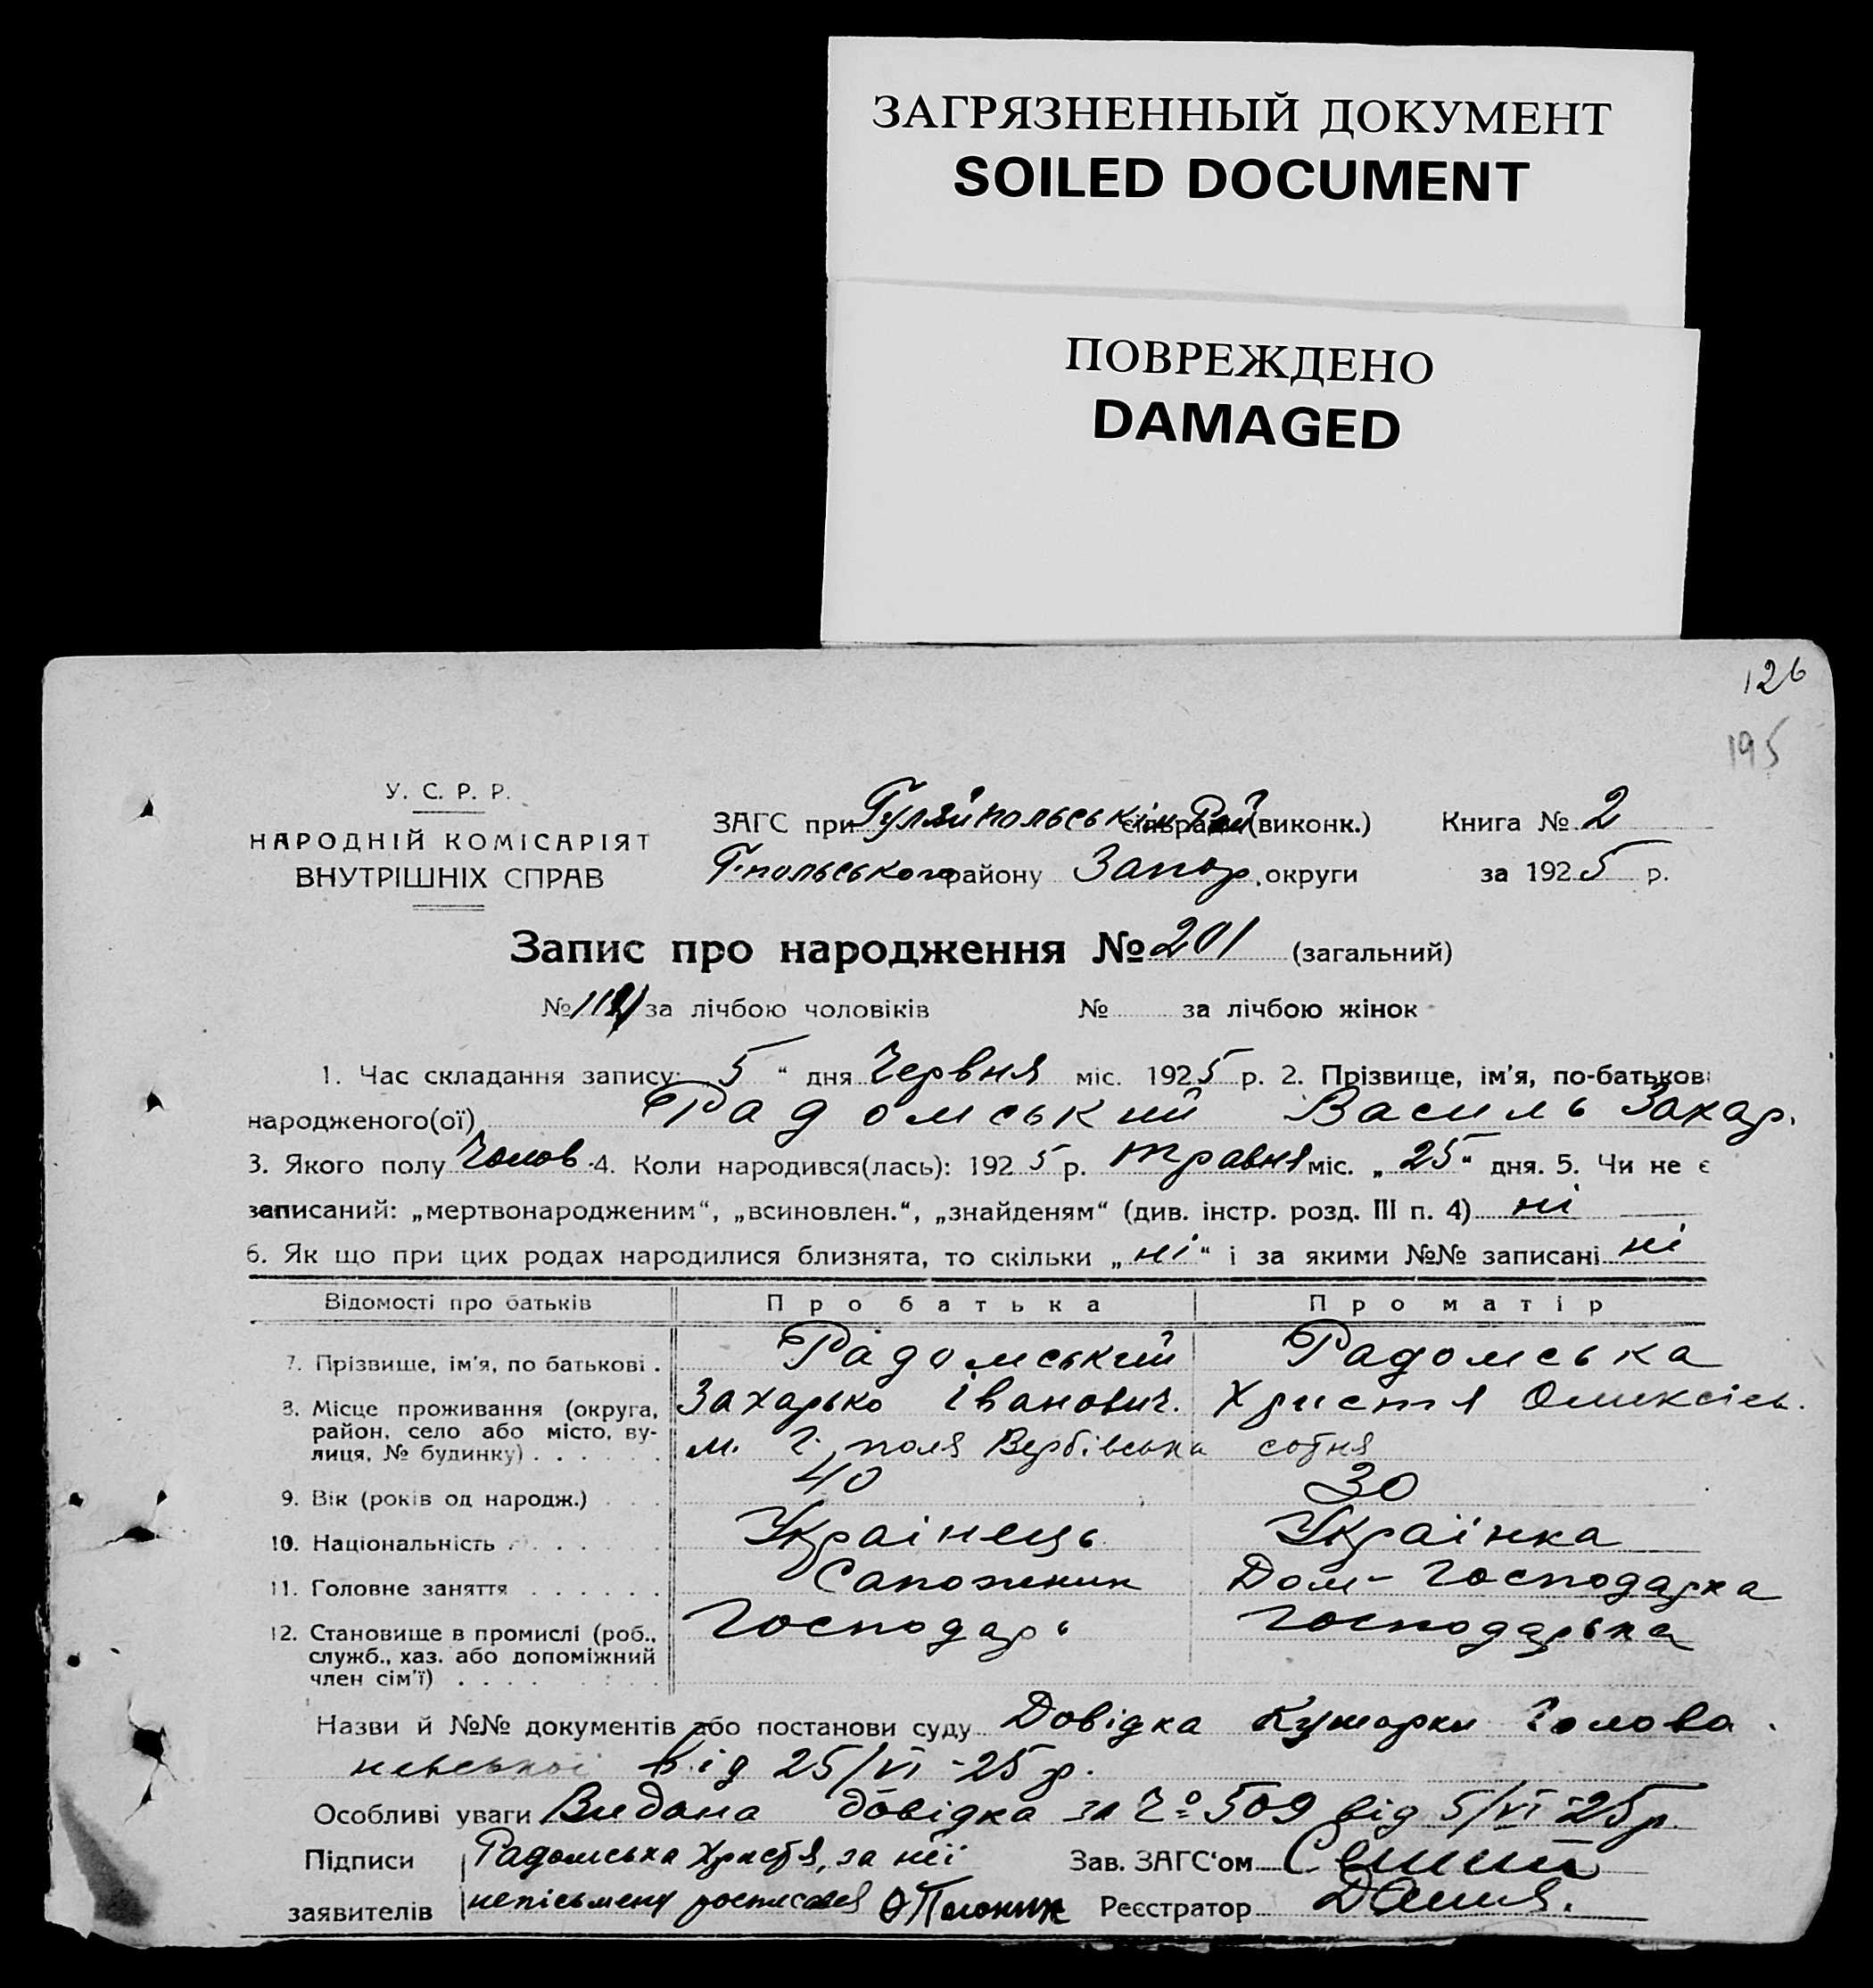 ЗАГРЯЗНЕННЫЙ ДОКУМЕНТ
SOILED DOCUMENT
ПОВРЕЖДЕНО
DAMAGED
126
195
У. С. Р. Р.
НАРОДНІЙ КОМІСАРІЯТ
ВНУТРІШНІХ СПРАВ
ЗАГС при Гуляйпольськім Рай (виконк.) Книга № 2
Г-польського району Запор. округи за 1925 р.
Запис про народження № 201 (загальний)
№ за лічбою чоловіків № за лічбою жінок
1. Час складання запису: „5“ дня Червня міс. 1925 р. 2. Прізвище, ім'я, по-батькові
народженого(ої) Радомський Василь Захар.
3. Якого полу Чолов. 4. Коли народився(лась): 1925 р. травня міс. „25“ дня. 5. Чи не є
записаний: „мертвонародженим“, „всиновлен.“, „знайденям“ (див. інстр. розд. III п. 4) ні
6. Як що при цих родах народилися близнята, то скільки „ні“ і за якими №№ записані ні
Відомості про батьків Про батька Про матір
7. Прізвище, ім'я, по батькові . Радомський Радомська
8. Місце проживання (округа, Захарько Іванович. Христя Оликсієв.
район, село або місто, ву- м. Г. поля Вербівська сотня
лиця, № будинку) . . . . . .
9. Вік (років од народж.) . . . 40 30
10. Національність . . . . . . Українець Українка
11. Головне заняття . . . . . . Сапожник Дом-Господарка
12. Становище в промислі (роб., Господарь Господарька
служб., хаз. або допоміжний
член сім'ї) . . . .
Назви й №№ документів або постанови суду Довідка
від 25/VI-25 р.
Особливі уваги Видана довідка за № 509 від 5/VI-25 р.
Підписи Радомська Христя, за неї Зав. ЗАГС'ом
заявителів непісьмену росписався Реєстратор